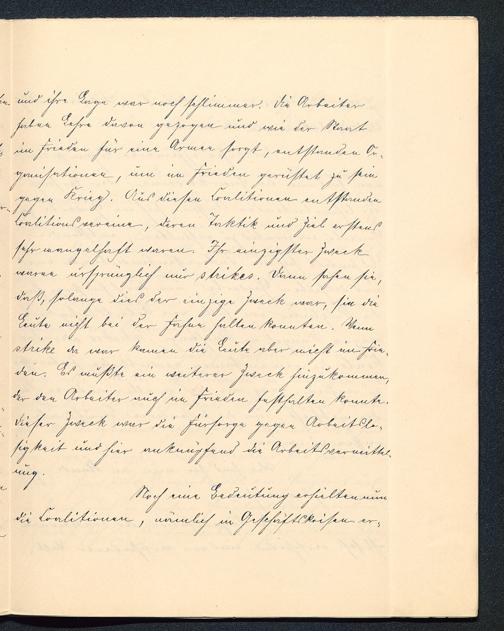 und ihre Lage war noch schlimmer. Die Arbeiter
haben Lehre davon gezogen und wie der Staat
im Frieden für eine Armee sorgt, entstanden Or-
ganisationen, um im Frieden gerüstet zu sein
gegen Krieg. Aus diesen Coalitionen entstanden
Coalitionsvereine, deren Taktik und Ziel erstens
sehr mangelhaft waren. Ihr einzigster Zweck
waren ursprünglich nur strikes. Dann sahen sie,
daß, solange dies der einzige Zweck war, sie die
Leute nicht bei der Fahne halten konnten. Wenn
strike da war kamen die Leute aber nicht im Frie-
den. Es mußte ein weiterer Zweck hinzukommen,
der den Arbeiter auch im Frieden festhalten konnte.
Dieser Zweck war die Fürsorge gegen Arbeitslo-
sigkeit und hier anknüpfend die Arbeitsvermittel-
ung.
Noch eine Bedeutung erhielten nun
die Coalitionen, nämlich in Geschäftskreisen er-